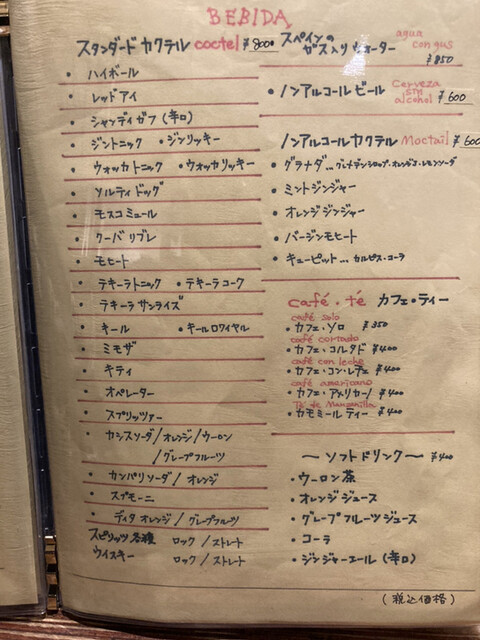 BEBIDA
スタンダード カクテル coctel ¥800
・ハイボール
・レッドアイ
・シャンディガフ (辛口)
・ジントニック ・ジンリッキー
・ウォッカトニック ・ウォッカリッキー
・ソルティドッグ
・モスコミュール
・クーバリブレ
・モヒート
・テキーラトニック ・テキーラコーク
・テキーラサンライズ
・キール ・キールロワイヤル
・ミモザ
・キティ
・オペレーター
・スプリッツァー
・カシスソーダ/オレンジ/ウーロン
/グレープフルーツ
・カンパリソーダ/オレンジ
・スプモーニ
・ディタ オレンジ/グレープフルーツ
スピリッツ各種 ロック/ストレート
ウイスキー ロック/ストレート
スペインの
ガス入りウォーター
agua
con gas
¥850
・ノンアルコールビール Cerveza
sin
alcohol ¥600
ノンアルコールカクテル Moctail ¥600
・グラナダ…グレナデンシロップ・オレンジJ・レモンソーダ
・ミントジンジャー
・オレンジジンジャー
・バージンモヒート
・キューピット…カルピス・コーラ
café・té カフェ・ティー
café solo
・カフェ・ソロ ¥350
café cortado
・カフェ・コルタド ¥400
café con leche
・カフェ・コン・レチェ ¥400
café americano
・カフェ・アメリカーノ ¥400
Té de Manzanilla
・カモミールティー ¥400
〜ソフトドリンク〜 ¥400
・ウーロン茶
・オレンジジュース
・グレープフルーツジュース
・コーラ
・ジンジャーエール (辛口)
(税込価格)